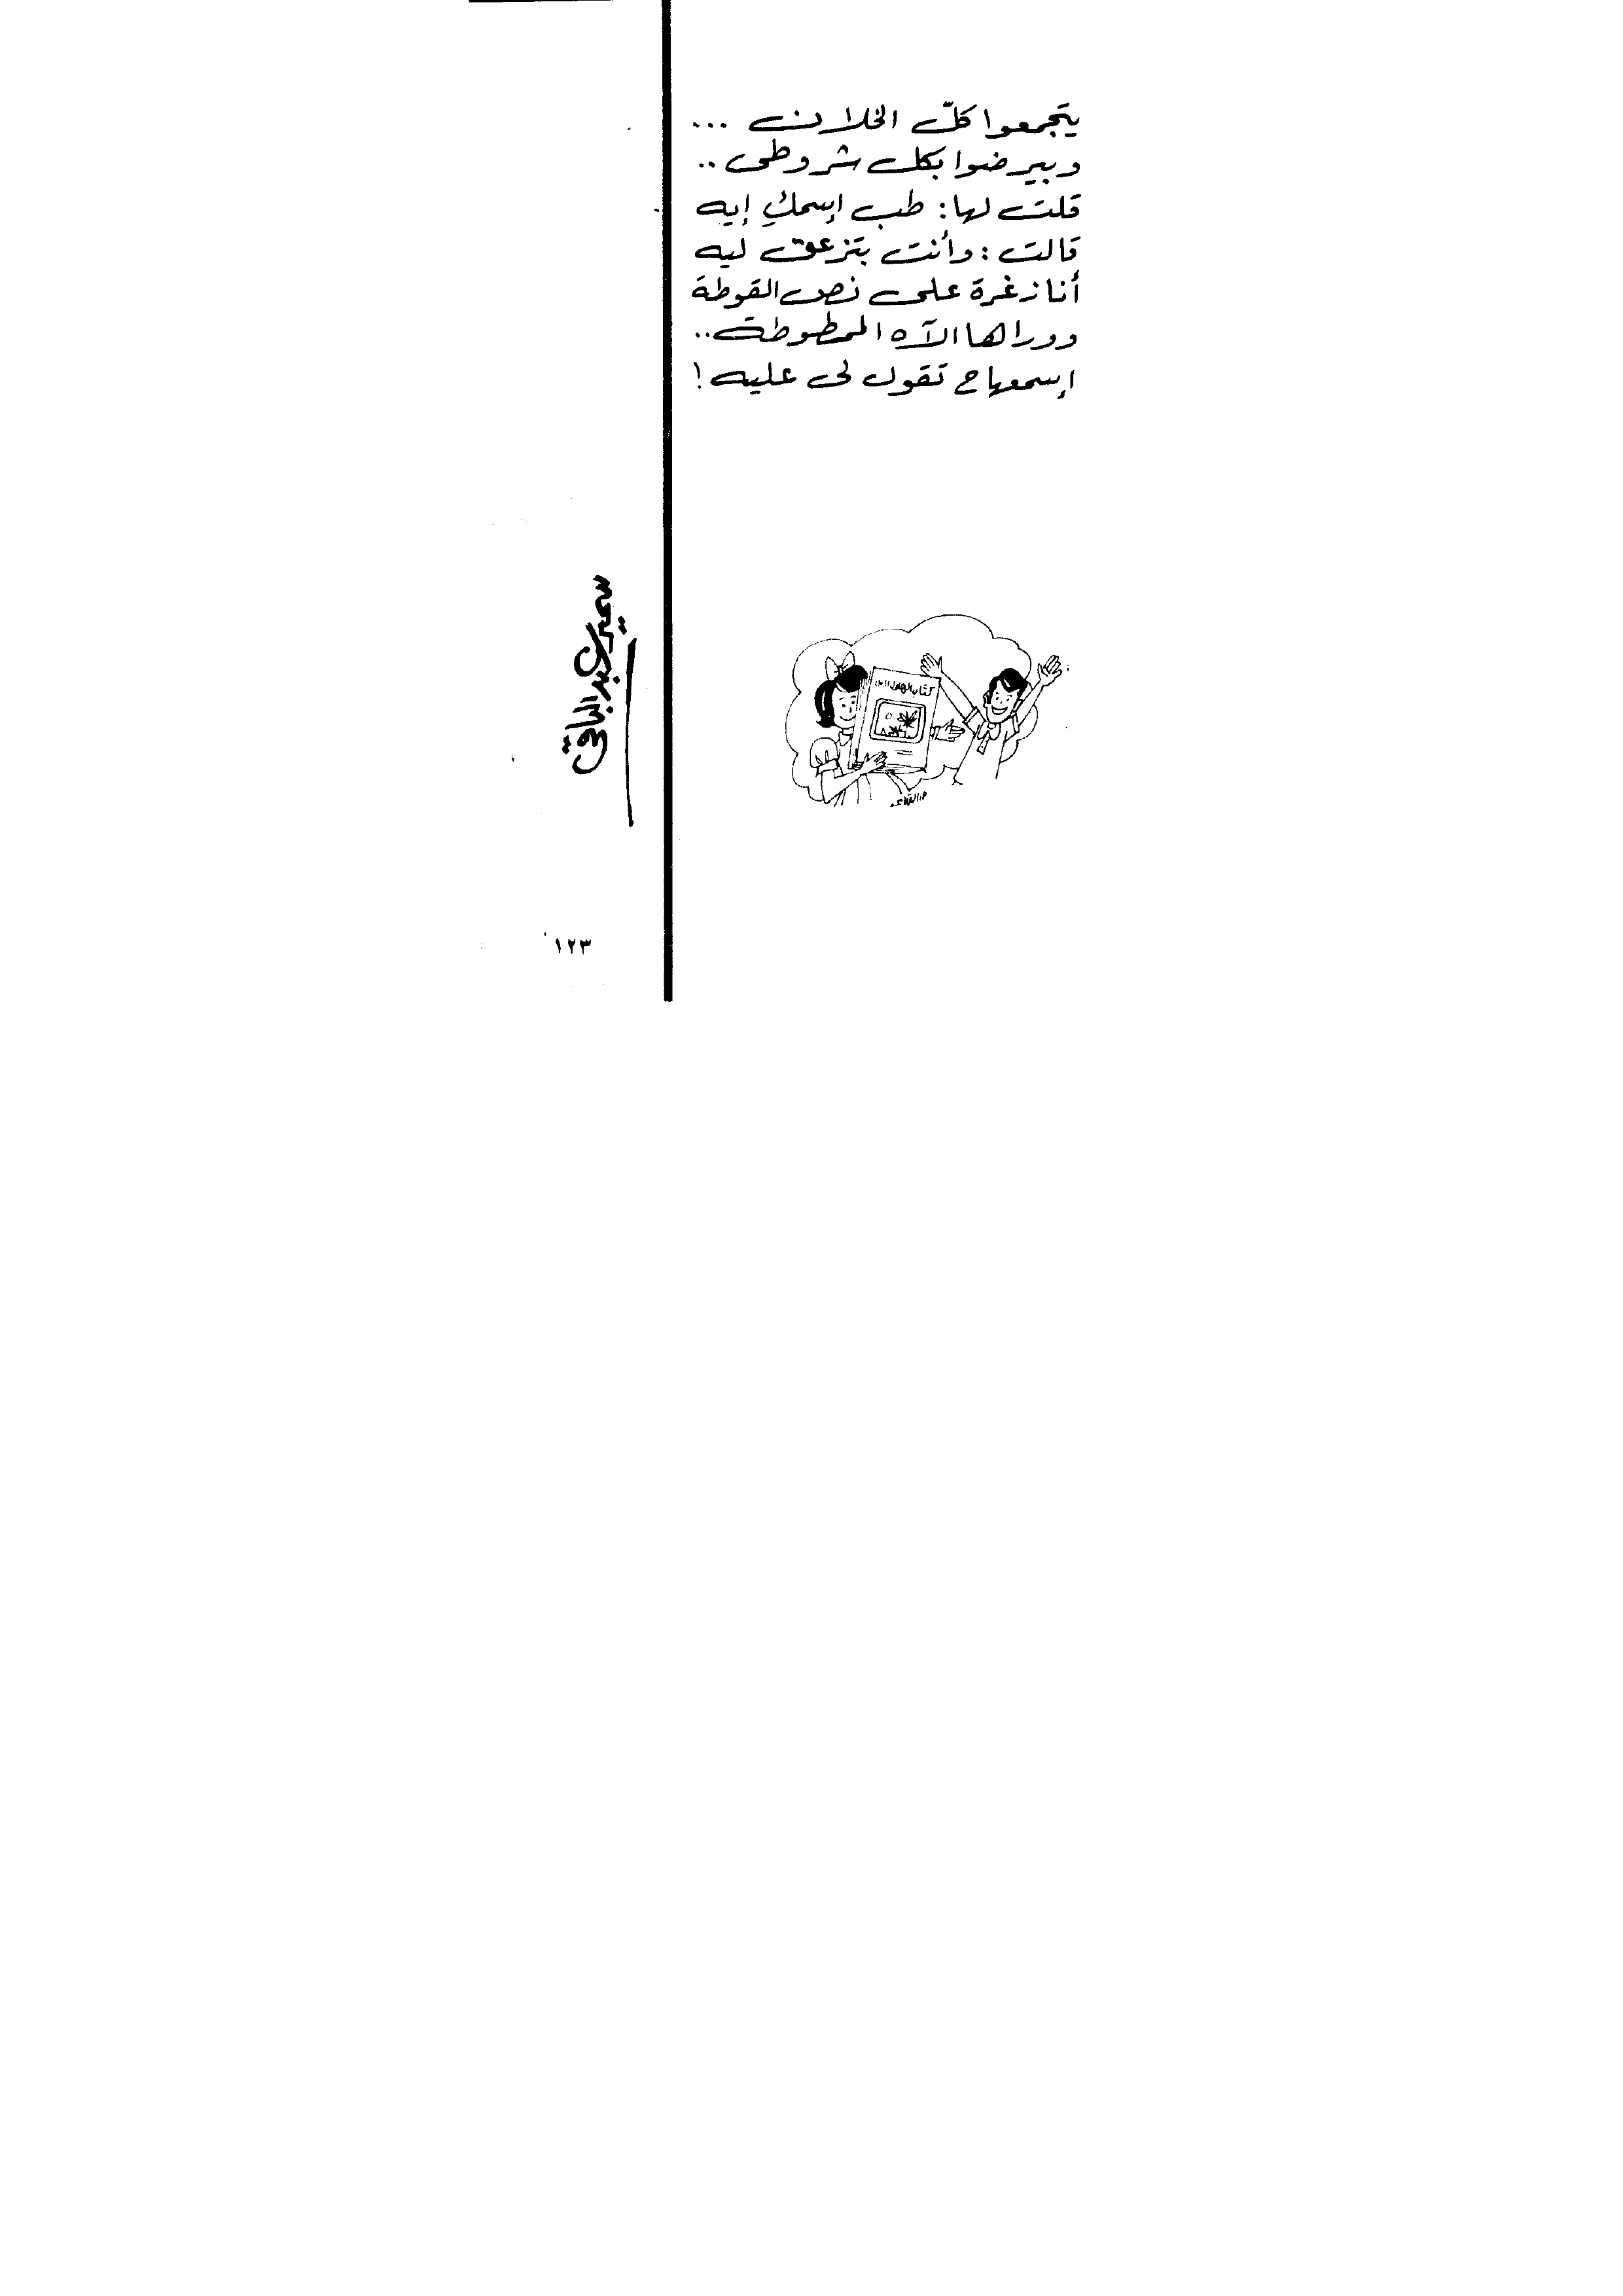 يتجمعوا كلّ الخلان ...
وبيرضوا بكل شروطى ..
قلت لها : طب إسمكِ إيه
قالت : وأنت بتزعق ليه
أنا زغرة على نص القوطة
ووراها الآه الممطوطة ..
إسمعها ح تقول لى عليه !
كتاب الهلال
سمير عبد الباقى
١٢٣